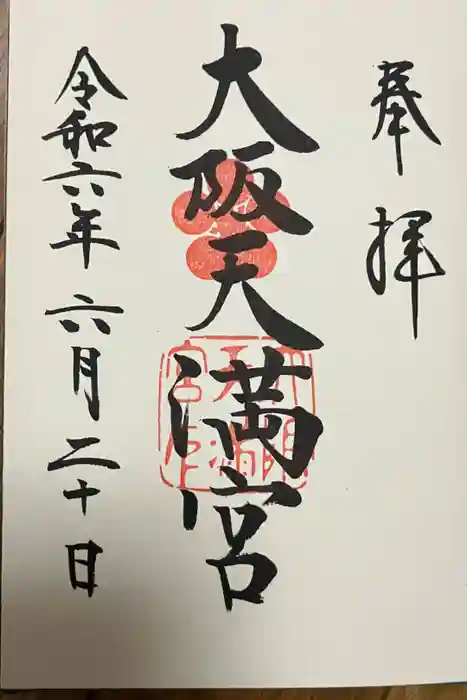 奉拝
大阪天満宮
令和六年 六月二十日